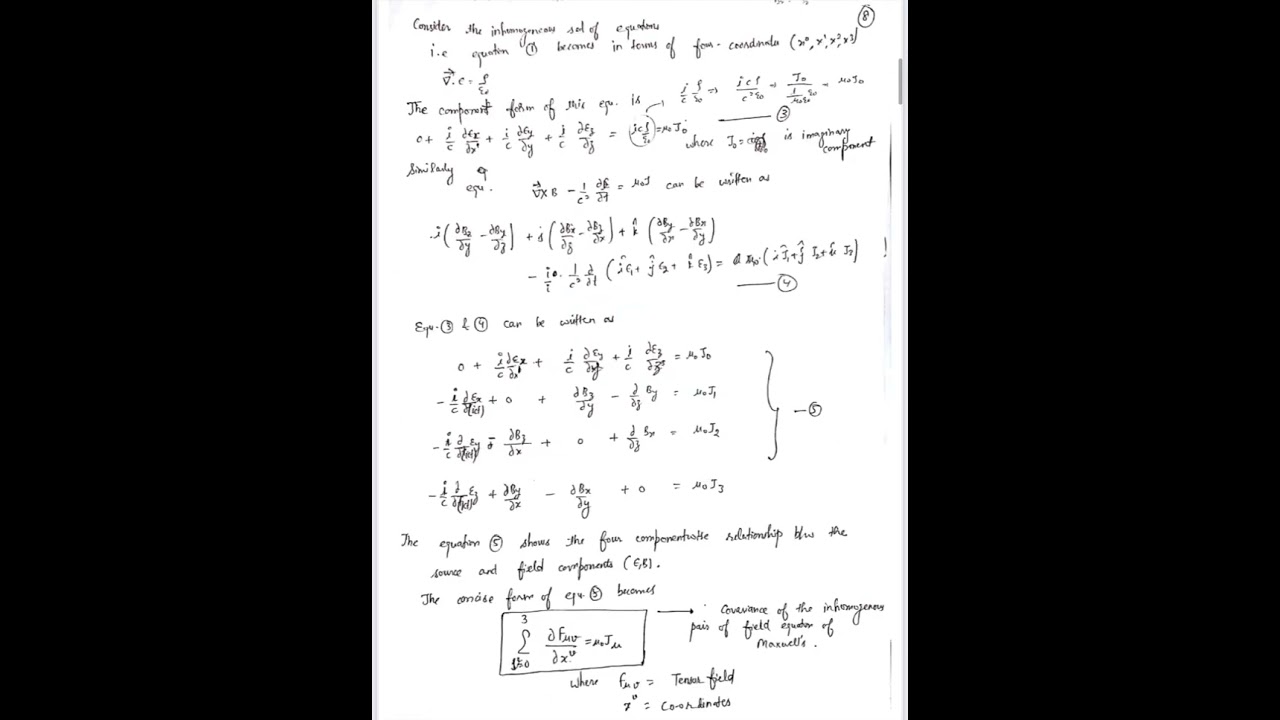 8
Consider the inhomogeneous set of equations
i.e equation ① becomes in terms of four-coordinate (x⁰, x¹, x², x³)
∇⃗.ε = ρ/ε₀
i/c ρ/ε₀ ⇒ icρ/c²ε₀ ⇒ J₀/(1/μ₀ε₀ ε₀) = μ₀J₀
The component form of this equ. is
0 + i/c ∂εx/∂x + i/c ∂εy/∂y + i/c ∂εz/∂z = icρ/ε₀ = μ₀J₀ —— ③
where J₀ = is imaginary component
Similarly equ. ∇⃗×B - 1/c² ∂E/∂t = μ₀J can be written as
i(∂Bz/∂y - ∂By/∂z) + j(∂Bx/∂z - ∂Bz/∂x) + k̂(∂By/∂x - ∂Bx/∂y)
- i/i . 1/c² ∂/∂t (îε₁ + ĵε₂ + k̂ε₃) = μ₀(îJ₁ + ĵJ₂ + k̂J₃) !
—— ④
Equ. ③ & ④ can be written as
0 + i/c ∂εx/∂x + i/c ∂εy/∂y + i/c ∂εz/∂z = μ₀J₀
- i/c ∂εx/∂(ict) + 0 + ∂Bz/∂y - ∂/∂z By = μ₀J₁
—⑤
- i/c ∂/∂(ict) εy - ∂Bz/∂x + 0 + ∂/∂z Bx = μ₀J₂
- i/c ∂/∂(ict) εz + ∂By/∂x - ∂Bx/∂y + 0 = μ₀J₃
The equation ⑤ shows the four componentwise relationship b/w the
source and field components (E,B).
The concise form of equ ⑤ becomes
3 Σ ν=0 ∂Fμν/∂xν = μ₀Jμ
→ Covariance of the inhomogenous
pair of field equation of
Maxwell's.
where Fμν = Tensor field
xν = co-ordinates